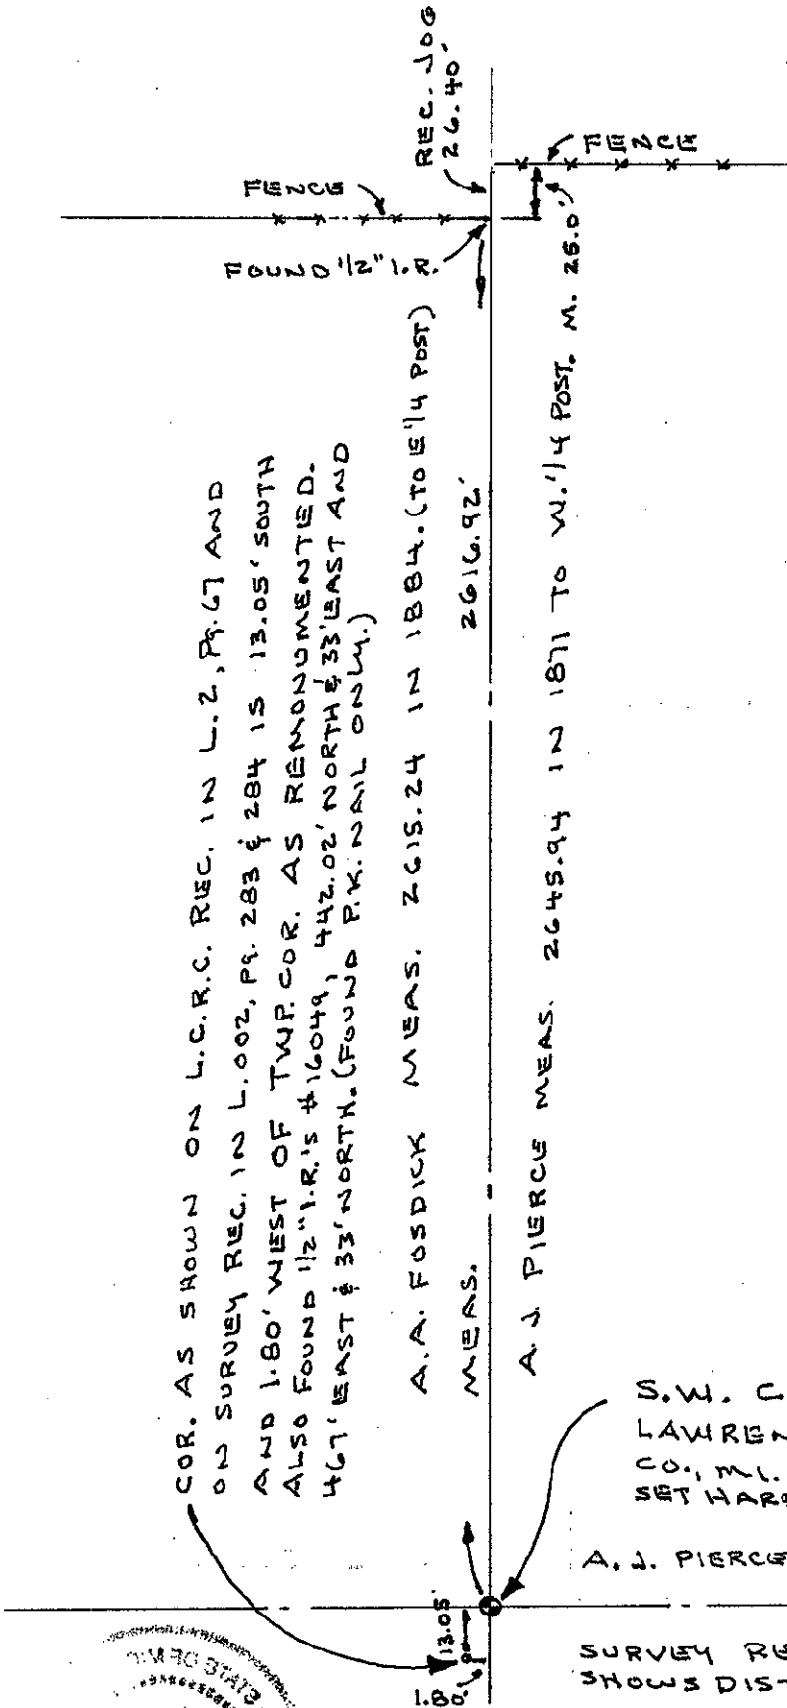 REC. JOG
26.40'
FENCE
FENCE
FOUND 1/2" I.R.
M. 25.0'
COR. AS SHOWN ON L.C.R.C. REC. IN L. 2, Pg. 67 AND
ON SURVEY REC. IN L. 002, Pg. 283 & 284 IS 13.05' SOUTH
AND 1.80' WEST OF TWP. COR. AS REMONUMENTED.
ALSO FOUND 1/2" I.R.'s #16049, 442.02' NORTH & 33' EAST AND
467' EAST & 33' NORTH. (FOUND P.K. NAIL ONLY.)
A.A. FOSDICK MEAS. 2615.24 IN 1884. (TO E 1/4 POST)
MEAS. 2616.92'
A.J. PIERCE MEAS. 2645.94 IN 1871 TO W. 1/4 POST.
S.W. C
LAWREN
CO., MI.
SET HAR
A.J. PIERCE
13.05'
1.80'
SURVEY RE
SHOWS DIS
STATE OF MI